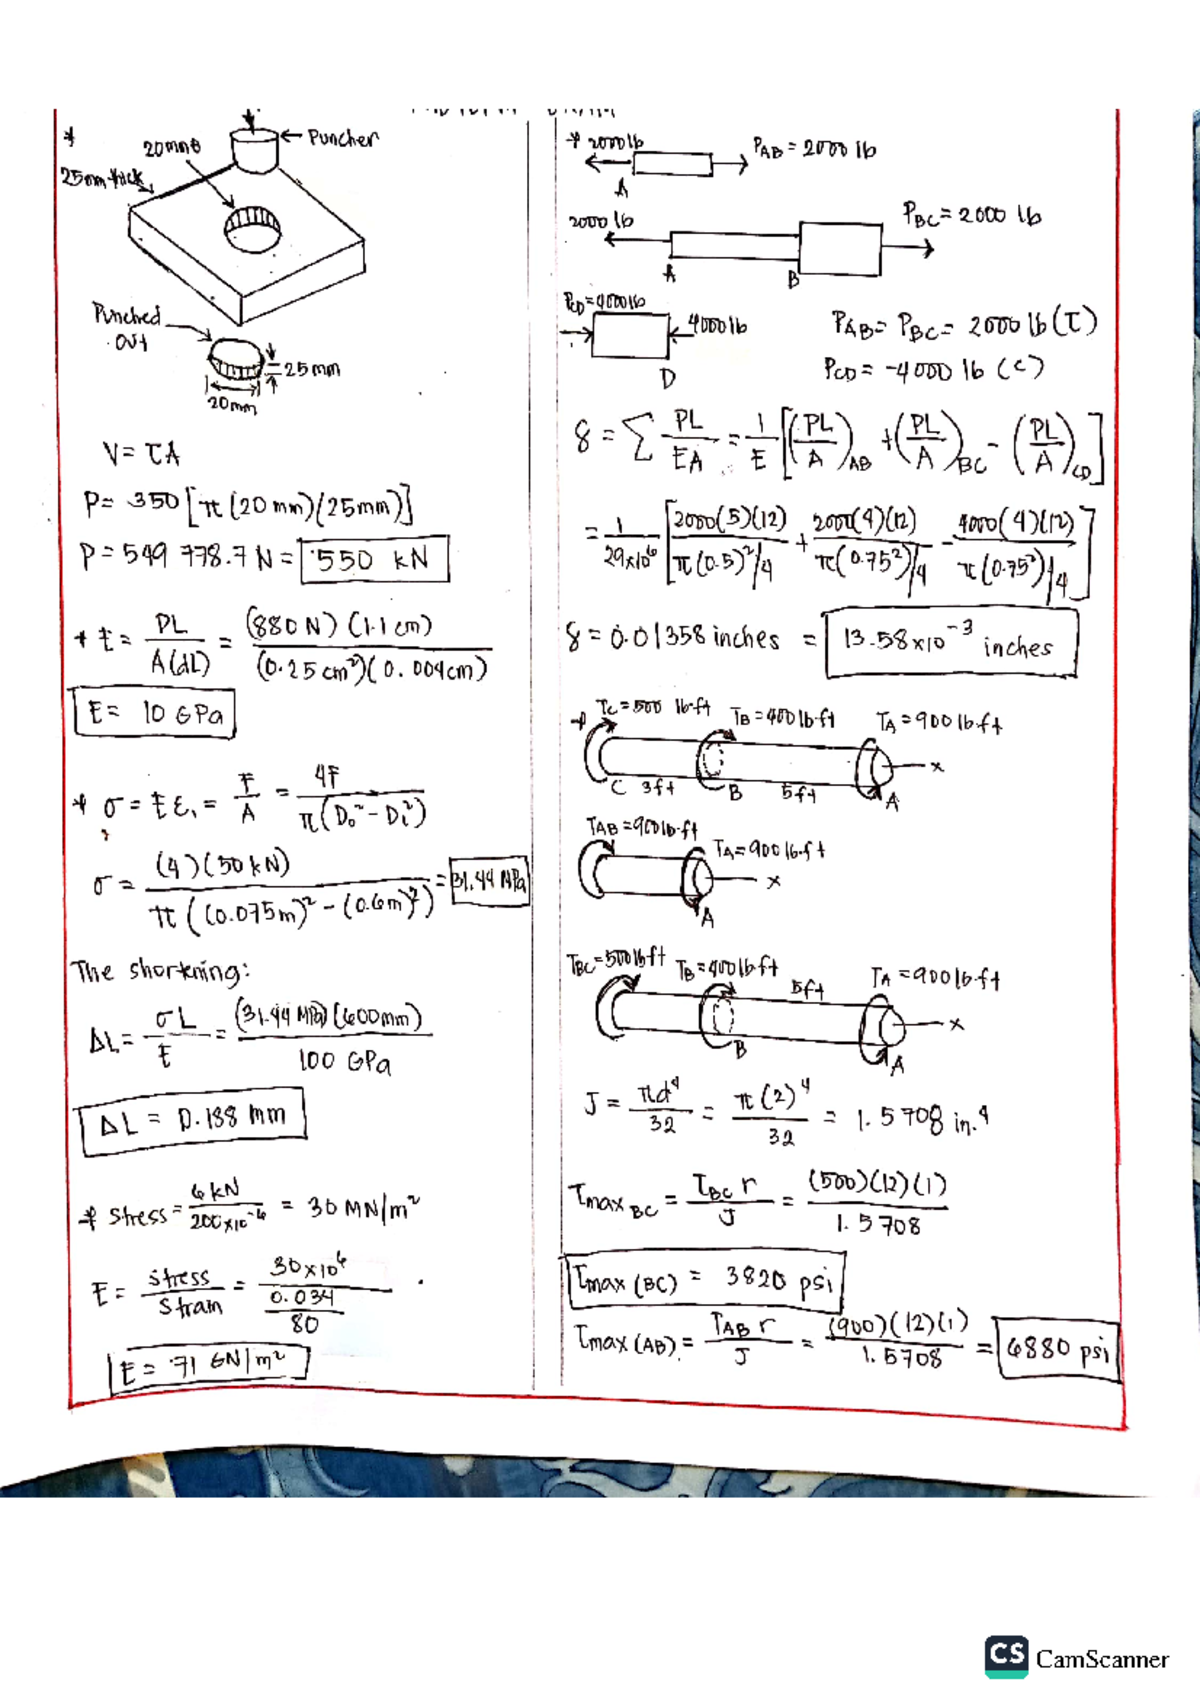 *
20mmθ
← Puncher
25mm thick
Punched
out
25mm
20mm
V = τA
P = 350 [π(20mm)(25mm)]
P = 549 778.7 N = 550 kN
* E = PL / A(dL) = (880N)(1.1cm) / (0.25cm²)(0.004cm)
E = 10 GPa
* σ = Eε, = F/A = 4F / π(D₀² - Dᵢ²)
σ = (4)(30kN) / π((0.075m)² - (0.6m)²) = 31.44 MPa
The shortening:
ΔL = σL / E = (31.44 MPa)(600mm) / 100 GPa
ΔL = 0.188 mm
* Stress = 6kN / 200x10⁻⁶ = 30 MN/m²
E = Stress / Strain = 30x10⁶ / 0.034 / 80
E = 71 GN/m²
* 2000lb
P_AB = 2000 lb
A
2000 lb
P_BC = 2000 lb
A B
P_CD = 4000lb
4000lb
D
P_AB = P_BC = 2000 lb (T)
P_CD = -4000 lb (C)
δ = Σ PL/EA = 1/E [(PL/A)_AB + (PL/A)_BC - (PL/A)_CD]
= 1/29x10⁶ [2000(5)(12) / π(0.5)²/4 + 2000(4)(12) / π(0.75²)/4 - 4000(4)(12) / π(0.75²)/4]
δ = 0.01358 inches = 13.58x10⁻³ inches
* T_C = 500 lb·ft T_B = 400lb·ft T_A = 900lb·ft
x
C 3ft B 5ft A
T_AB = 900lb·ft
T_A = 900lb·ft
x
A
T_BC = 500lb·ft T_B = 400lb·ft 5ft T_A = 900lb·ft
x
B A
J = πd⁴/32 = π(2)⁴/32 = 1.5708 in.⁴
τmax BC = T_BC r / J = (500)(12)(1) / 1.5708
τmax (BC) = 3820 psi
τmax (AB) = T_AB r / J = (900)(12)(1) / 1.5708 = 6880 psi
CS CamScanner